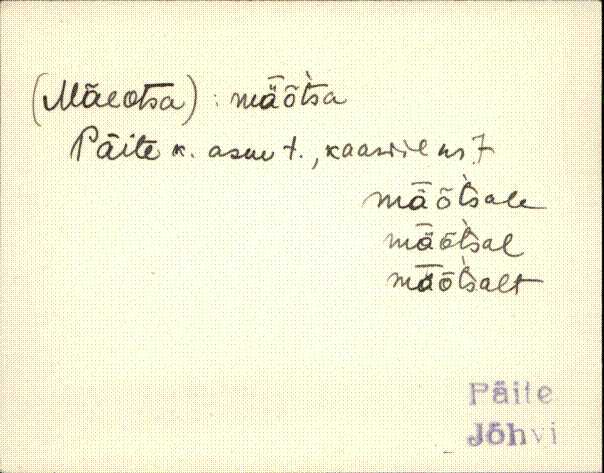 (Mäeotsa) : mǟõt̀sa
Päite k. asu t., kaardil nr 7
mǟõt̀sale
mǟõt̀sal
mǟõt̀salt
Päite
Jõhvi